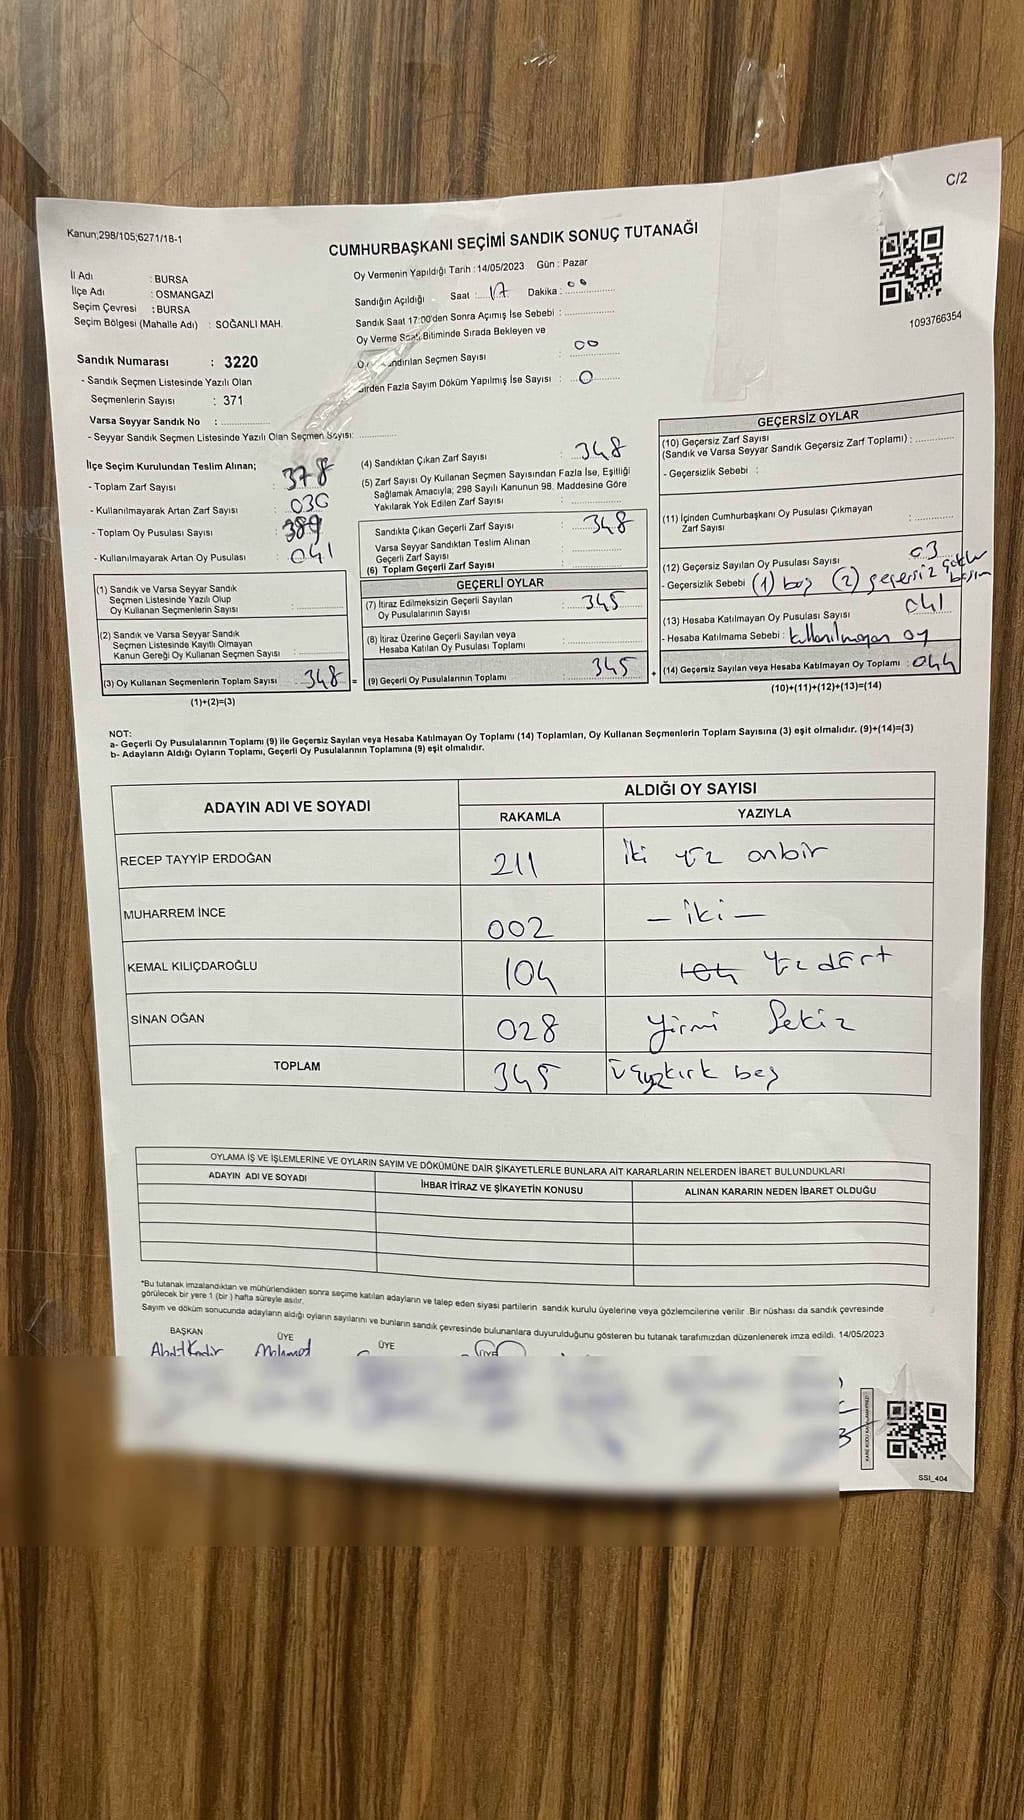 C/2
Kanun;298/105;6271/18-1
CUMHURBAŞKANI SEÇİMİ SANDIK SONUÇ TUTANAĞI
1093766354
İl Adı : BURSA
İlçe Adı : OSMANGAZİ
Seçim Çevresi : BURSA
Seçim Bölgesi (Mahalle Adı) : SOĞANLI MAH.
Sandık Numarası : 3220
- Sandık Seçmen Listesinde Yazılı Olan
Seçmenlerin Sayısı : 371
Varsa Seyyar Sandık No :
- Seyyar Sandık Seçmen Listesinde Yazılı Olan Seçmen Sayısı:
Oy Vermenin Yapıldığı Tarih : 14/05/2023 Gün : Pazar
Sandığın Açıldığı Saat : 17 Dakika : 00
Sandık Saat 17:00'den Sonra Açımış İse Sebebi :
Oy Verme Saati Bitiminde Sırada Bekleyen ve
Seçmen Sayısı : 00
Birden Fazla Sayım Döküm Yapılmış İse Sayısı : 0
İlçe Seçim Kurulundan Teslim Alınan;
- Toplam Zarf Sayısı : 378
- Kullanılmayarak Artan Zarf Sayısı : 030
- Toplam Oy Pusulası Sayısı : 389
- Kullanılmayarak Artan Oy Pusulası : 041
(1) Sandık ve Varsa Seyyar Sandık
Seçmen Listesinde Yazılı Olup
Oy Kullanan Seçmenlerin Sayısı :
(2) Sandık ve Varsa Seyyar Sandık
Seçmen Listesinde Kayıtlı Olmayan
Kanun Gereği Oy Kullanan Seçmen Sayısı :
(3) Oy Kullanan Seçmenlerin Toplam Sayısı : 348 =
(1)+(2)=(3)
(4) Sandıktan Çıkan Zarf Sayısı : 348
(5) Zarf Sayısı Oy Kullanan Seçmen Sayısından Fazla İse, Eşitliği
Sağlamak Amacıyla, 298 Sayılı Kanunun 98. Maddesine Göre
Yakılarak Yok Edilen Zarf Sayısı :
Sandıkta Çıkan Geçerli Zarf Sayısı : 348
Varsa Seyyar Sandıktan Teslim Alınan
Geçerli Zarf Sayısı :
(6) Toplam Geçerli Zarf Sayısı :
GEÇERLİ OYLAR
(7) İtiraz Edilmeksizin Geçerli Sayılan
Oy Pusulalarının Sayısı : 345
(8) İtiraz Üzerine Geçerli Sayılan veya
Hesaba Katılan Oy Pusulası Toplamı :
(9) Geçerli Oy Pusulalarının Toplamı : 345 +
GEÇERSİZ OYLAR
(10) Geçersiz Zarf Sayısı
(Sandık ve Varsa Seyyar Sandık Geçersiz Zarf Toplamı) :
- Geçersizlik Sebebi :
(11) İçinden Cumhurbaşkanı Oy Pusulası Çıkmayan
Zarf Sayısı :
(12) Geçersiz Sayılan Oy Pusulası Sayısı : 03
- Geçersizlik Sebebi : (1) boş (2) geçersiz çoklu
basım
(13) Hesaba Katılmayan Oy Pusulası Sayısı : 041
- Hesaba Katılmama Sebebi : kullanılmayan oy
(14) Geçersiz Sayılan veya Hesaba Katılmayan Oy Toplamı : 044
(10)+(11)+(12)+(13)=(14)
NOT:
a- Geçerli Oy Pusulalarının Toplamı (9) ile Geçersiz Sayılan veya Hesaba Katılmayan Oy Toplamı (14) Toplamları, Oy Kullanan Seçmenlerin Toplam Sayısına (3) eşit olmalıdır. (9)+(14)=(3)
b- Adayların Aldığı Oyların Toplamı, Geçerli Oy Pusulalarının Toplamına (9) eşit olmalıdır.
ADAYIN ADI VE SOYADI ALDIĞI OY SAYISI
RAKAMLA YAZIYLA
RECEP TAYYİP ERDOĞAN 211 iki yüz onbir
MUHARREM İNCE 002 - iki -
KEMAL KILIÇDAROĞLU 104 104 Yüz dört
SİNAN OĞAN 028 yirmi Sekiz
TOPLAM 345 üçyüzkırk beş
OYLAMA İŞ VE İŞLEMLERİNE VE OYLARIN SAYIM VE DÖKÜMÜNE DAİR ŞİKAYETLERLE BUNLARA AİT KARARLARIN NELERDEN İBARET BULUNDUKLARI
ADAYIN ADI VE SOYADI İHBAR İTİRAZ VE ŞİKAYETİN KONUSU ALINAN KARARIN NEDEN İBARET OLDUĞU
*Bu tutanak imzalandıktan ve mühürlendikten sonra seçime katılan adayların ve talep eden siyasi partilerin sandık kurulu üyelerine veya gözlemcilerine verilir .Bir nüshası da sandık çevresinde
görülecek bir yere 1 (bir ) hafta süreyle asılır.
Sayım ve döküm sonucunda adayların aldığı oyların sayılarını ve bunların sandık çevresinde bulunanlara duyurulduğunu gösteren bu tutanak tarafımızdan düzenlenerek imza edildi. 14/05/2023
BAŞKAN ÜYE ÜYE ÜYE
Abdulkadir Mehmet
SSI_404